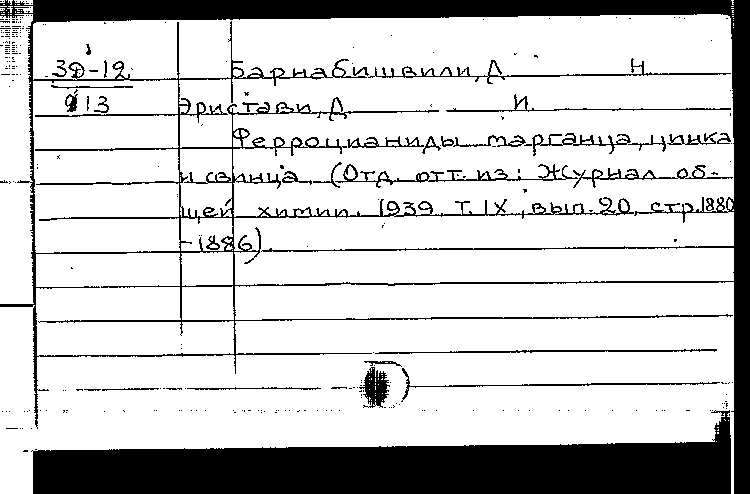 3Д-12 Барнабишвили, Д. Н.
913 Эристави, Д. И.
Ферроцианиды марганца, цинка
и свинца. (Отд. отт. из: Журнал об-
щей химии. 1939, Т. IX, вып. 20, стр. 1880
-1886).